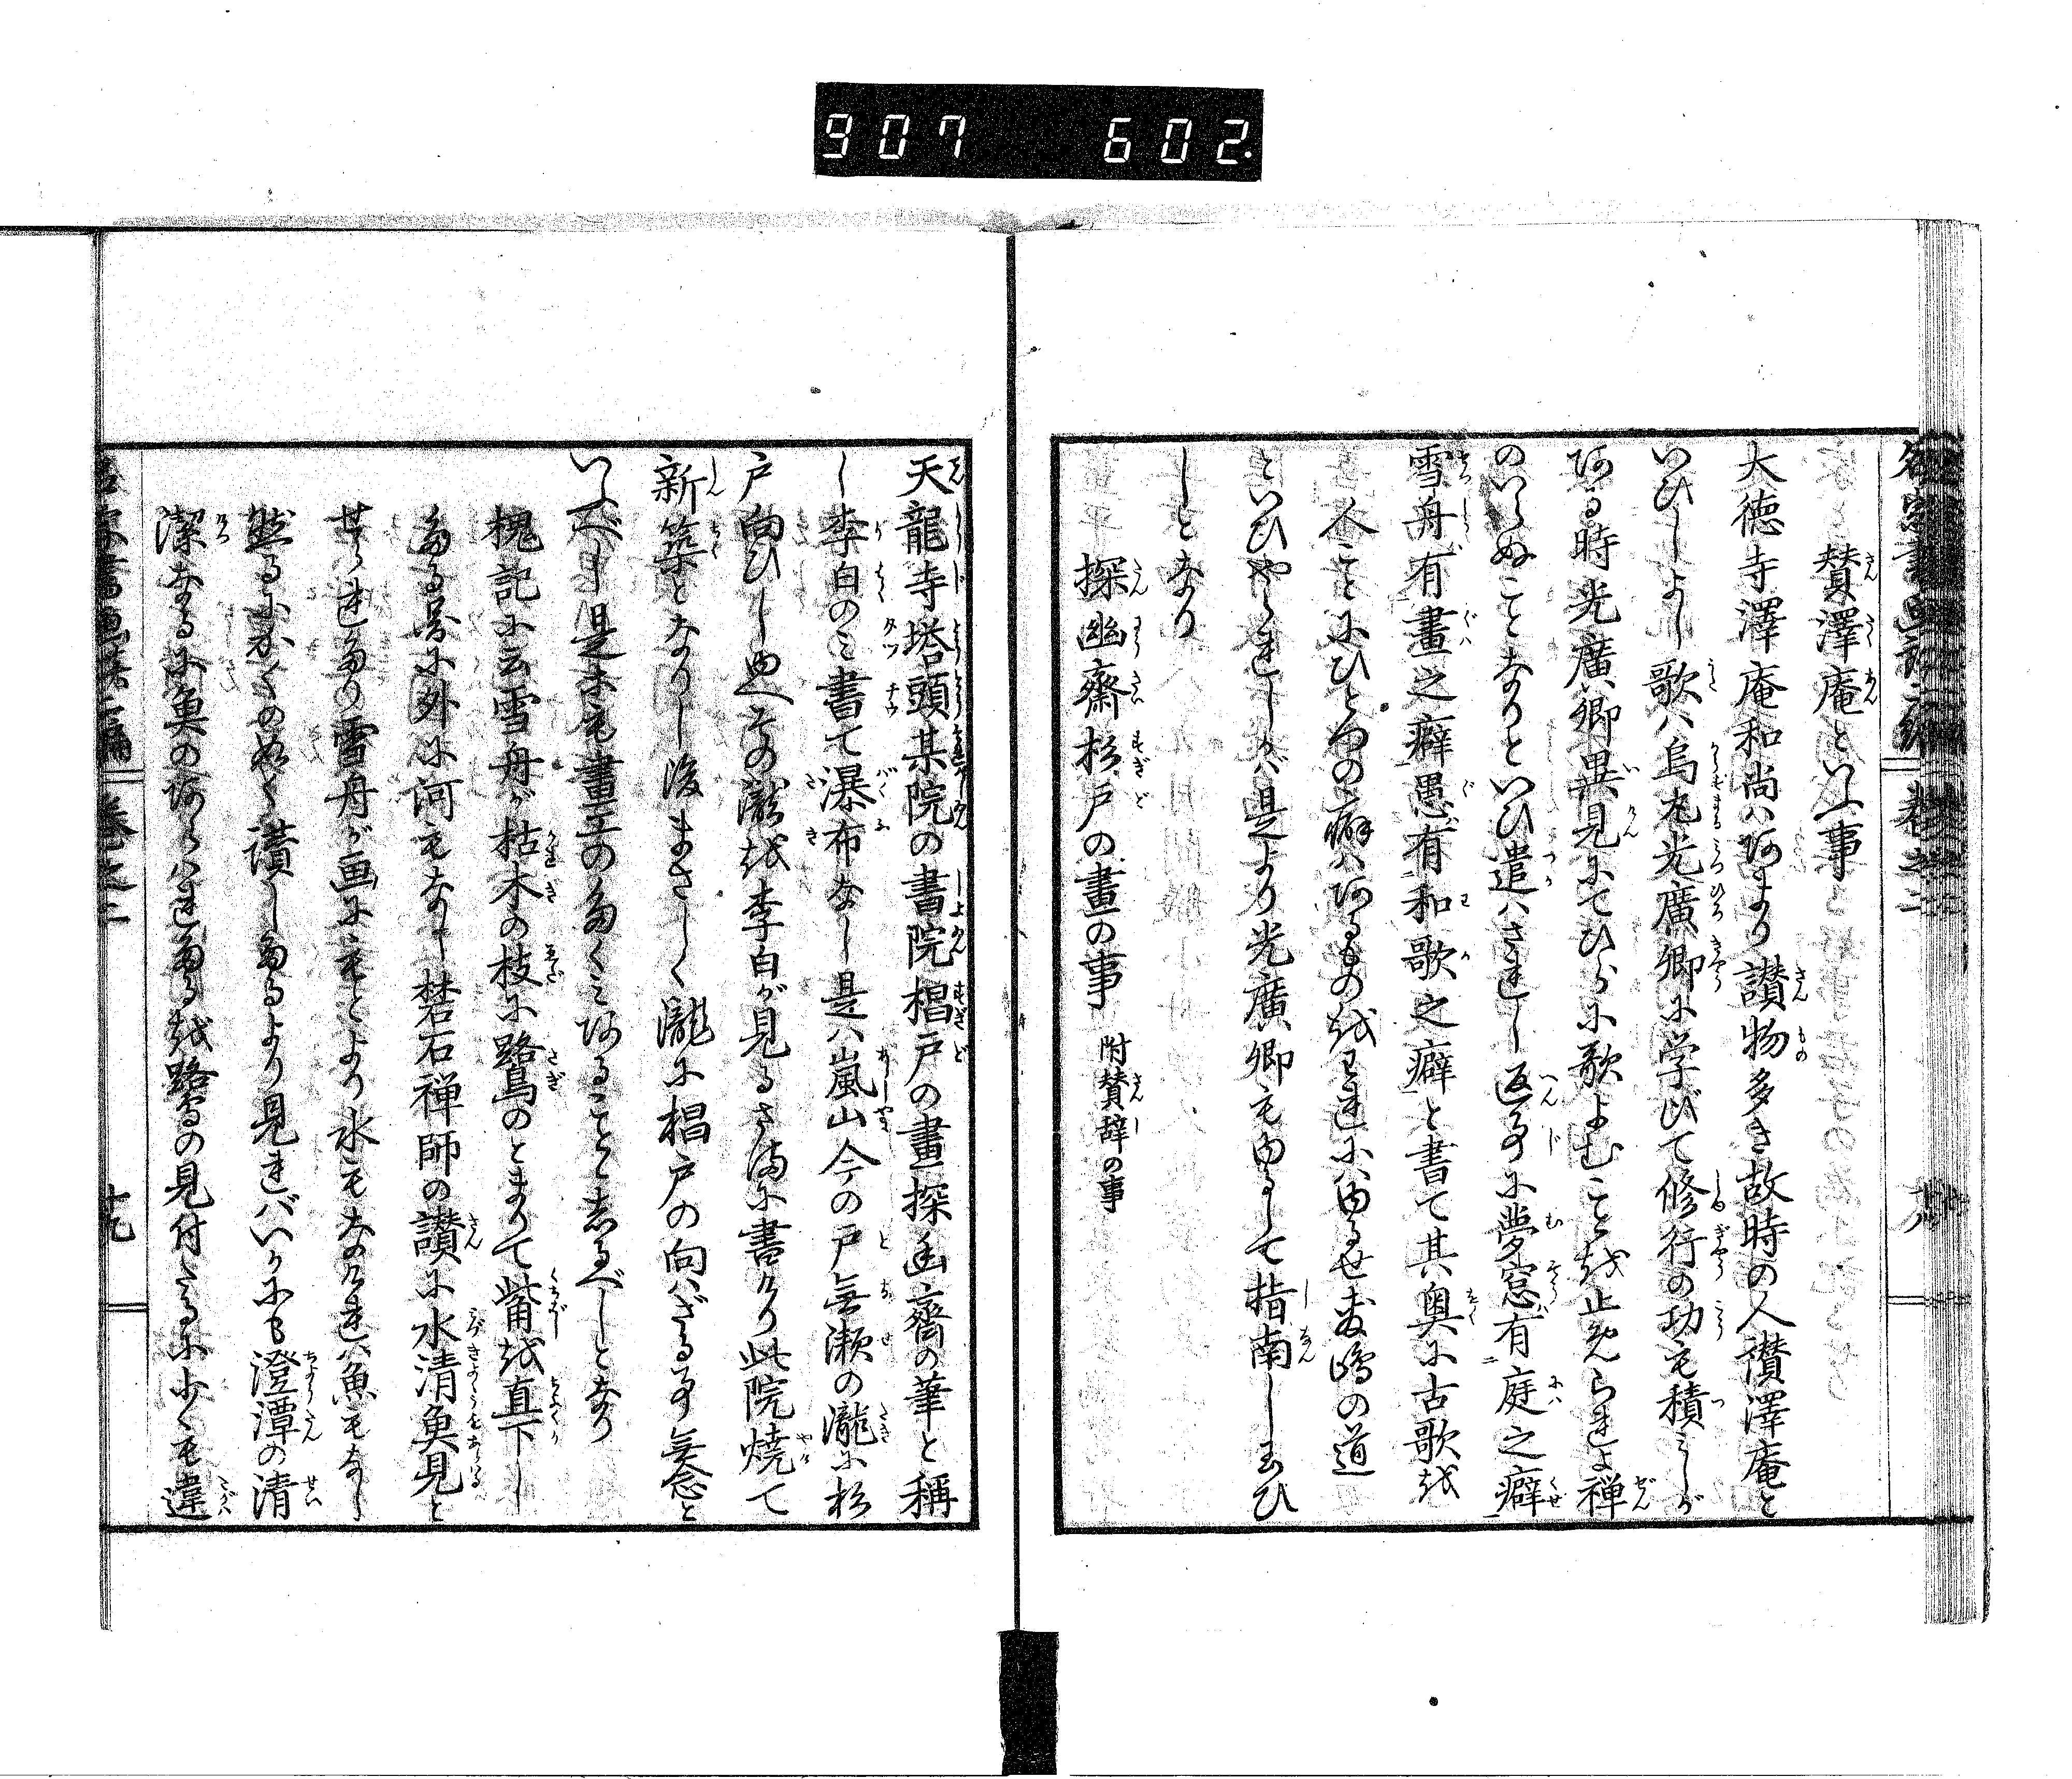 907 602
賛澤庵といふ事
大徳寺澤庵和尚ハあまり讃物多き故時の人讃澤庵と
いひしよし歌ハ烏丸光廣卿に学びて修行の功も積みしが
ある時光廣卿異見にてひらに歌よむことを止めらしよ禅
のいらぬことなりといひ遣ハされし返事に夢窓有庭之癖
雪舟有畫之癖愚有和歌之癖と書て其奥に古歌を
人ことにひとつの癖ハあるものをわれにハゆるせ敷嶋の道
といひやられしかバ是より光廣卿もゆるして指南し玉ひ
しとなり
探幽齋杉戸の畫の事 附賛辞の事
天龍寺塔頭某院の書院椙戸の畫探幽齋の筆と稱
し李白のミ書て瀑布なし是ハ嵐山今の戸無瀬の瀧に杉
戸向ひし也その瀧を李白が見るさまに書けり此院焼て
新築となりし後まさしく瀧に椙戸の向ハざる事無念と
いふべし是等も畫工の多くミあることと志るべしとなり
槐記に云雪舟が枯木の枝に鷺のとまりて觜を直下し
たる畧に外に何もなし楚石禅師の讃に水清魚見と
せられたり雪舟が画にもとより水もなけれハ魚もなし
然るにかくのぬく讃したるより見れバいかにも澄潭の清
潔なるに魚のあらハれたるを鷺の見付たるに少しも違
名家書畫談二編 巻之二
十九